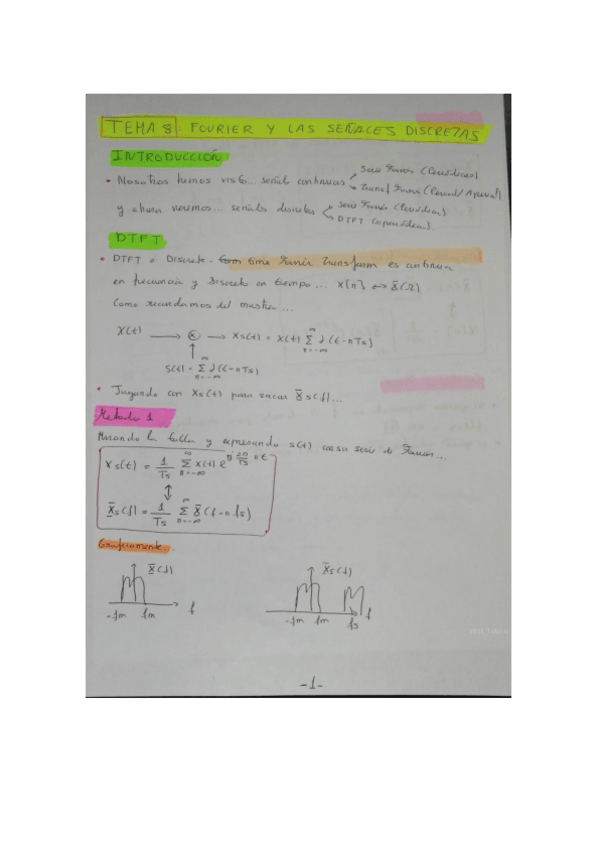 TEMA 8: FOURIER Y LAS SEÑALES DISCRETAS
INTRODUCCIÓN
• Nosotros hemos visto... señales continuas
Serie Fourier (Periódicas)
Transf Fourier (Period/Aperiod)
y ahora veremos... señales discretas
Serie Fourier (Periódicas)
DTFT (aperiódicas).
DTFT
• DTFT = Discrete - Time Fourier Transform es continua
en frecuencia y discreta en tiempo... x[n] ↔ X̄(Ω)
Como recordamos del muestreo...
X(t) → ⊗ → Xs(t) = X(t) ∑ δ(t-nTs)
∞
n=-∞
↑
S(t) = ∑ δ(t-nTs)
∞
n=-∞
• Jugando con Xs(t) para sacar X̄s(f)...
Método 1
Mirando la tabla y expresando s(t) con su serie de Fourier...
Xs(t) = 1/Ts ∑ X(t) e^(j 2π/Ts nt)
∞
n=-∞
↕
X̄s(f) = 1/Ts ∑ X̄(f-nfs)
∞
n=-∞
Graficamente..
X̄(f)
X̄s(f)
-fm fm f
-fm fm fs f
-1-